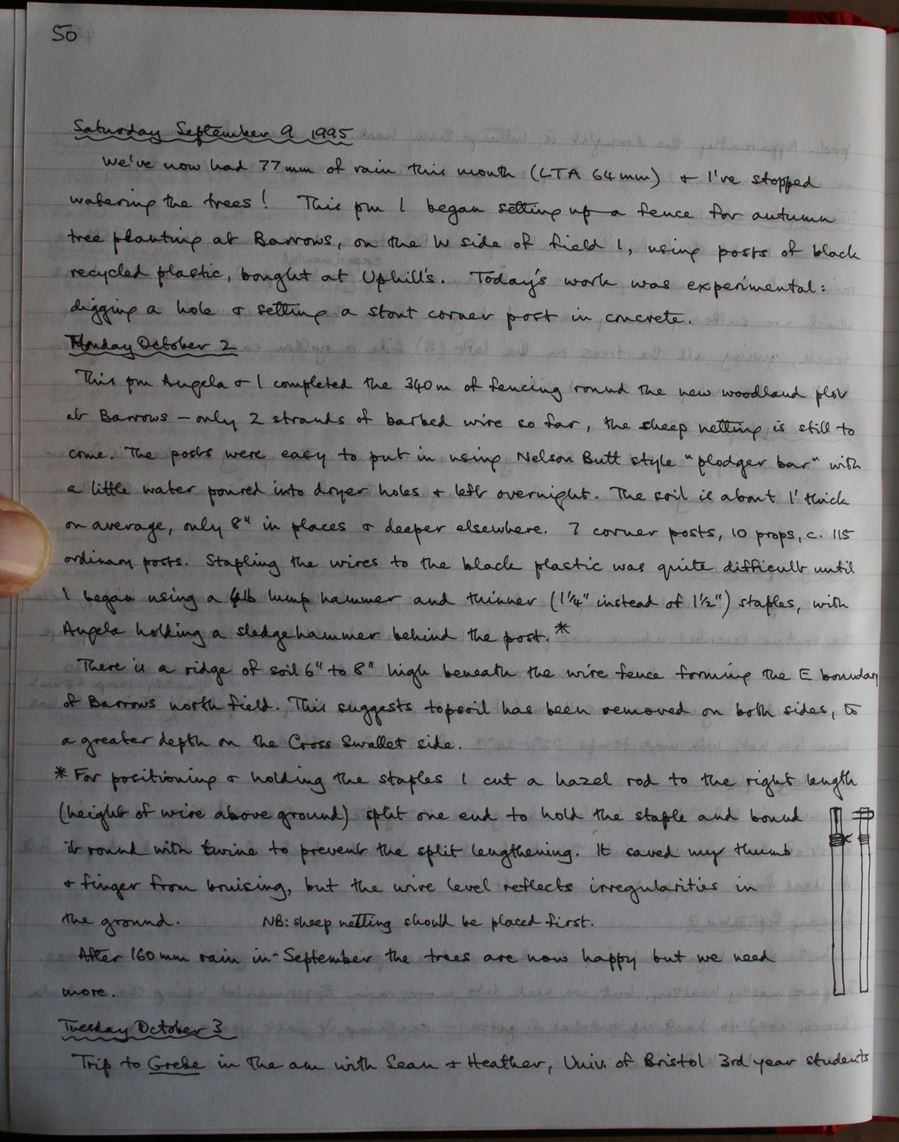 50
Saturday September 9 1995
We've now had 77mm of rain this month (LTA 64mm) & I've stopped
watering the trees! This pm I began setting up a fence for autumn
tree planting at Barrows, on the W side of field 1, using posts of black
recycled plastic, bought at Uphill's. Today's work was experimental:
digging a hole & setting a stout corner post in concrete.
Monday October 2
This pm Angela & I completed the 340m of fencing round the new woodland plot
at Barrows – only 2 strands of barbed wire so far, the sheep netting is still to
come. The posts were easy to put in using Nelson Butt style "plodger bar" with
a little water poured into dryer holes & left overnight. The soil is about 1' thick
on average, only 8" in places & deeper elsewhere. 7 corner posts, 10 props, c. 115
ordinary posts. Stapling the wires to the black plastic was quite difficult until
I began using a 4lb lump hammer and thinner (1¼" instead of 1½") staples, with
Angela holding a sledgehammer behind the post.*
There is a ridge of soil 6" to 8" high beneath the wire fence forming the E boundary
of Barrows north field. This suggests topsoil has been removed on both sides, to
a greater depth on the Cross Swallet side.
* For positioning & holding the staples I cut a hazel rod to the right length
(height of wire above ground) split one end to hold the staple and bound
it round with twine to prevent the split lengthening. It saved my thumb
& finger from bruising, but the wire level reflects irregularities in
the ground. NB: sheep netting should be placed first.
After 160mm rain in September the trees are now happy but we need
more.
Tuesday October 3
Trip to Grebe in the am with Sean & Heather, Univ. of Bristol 3rd year students